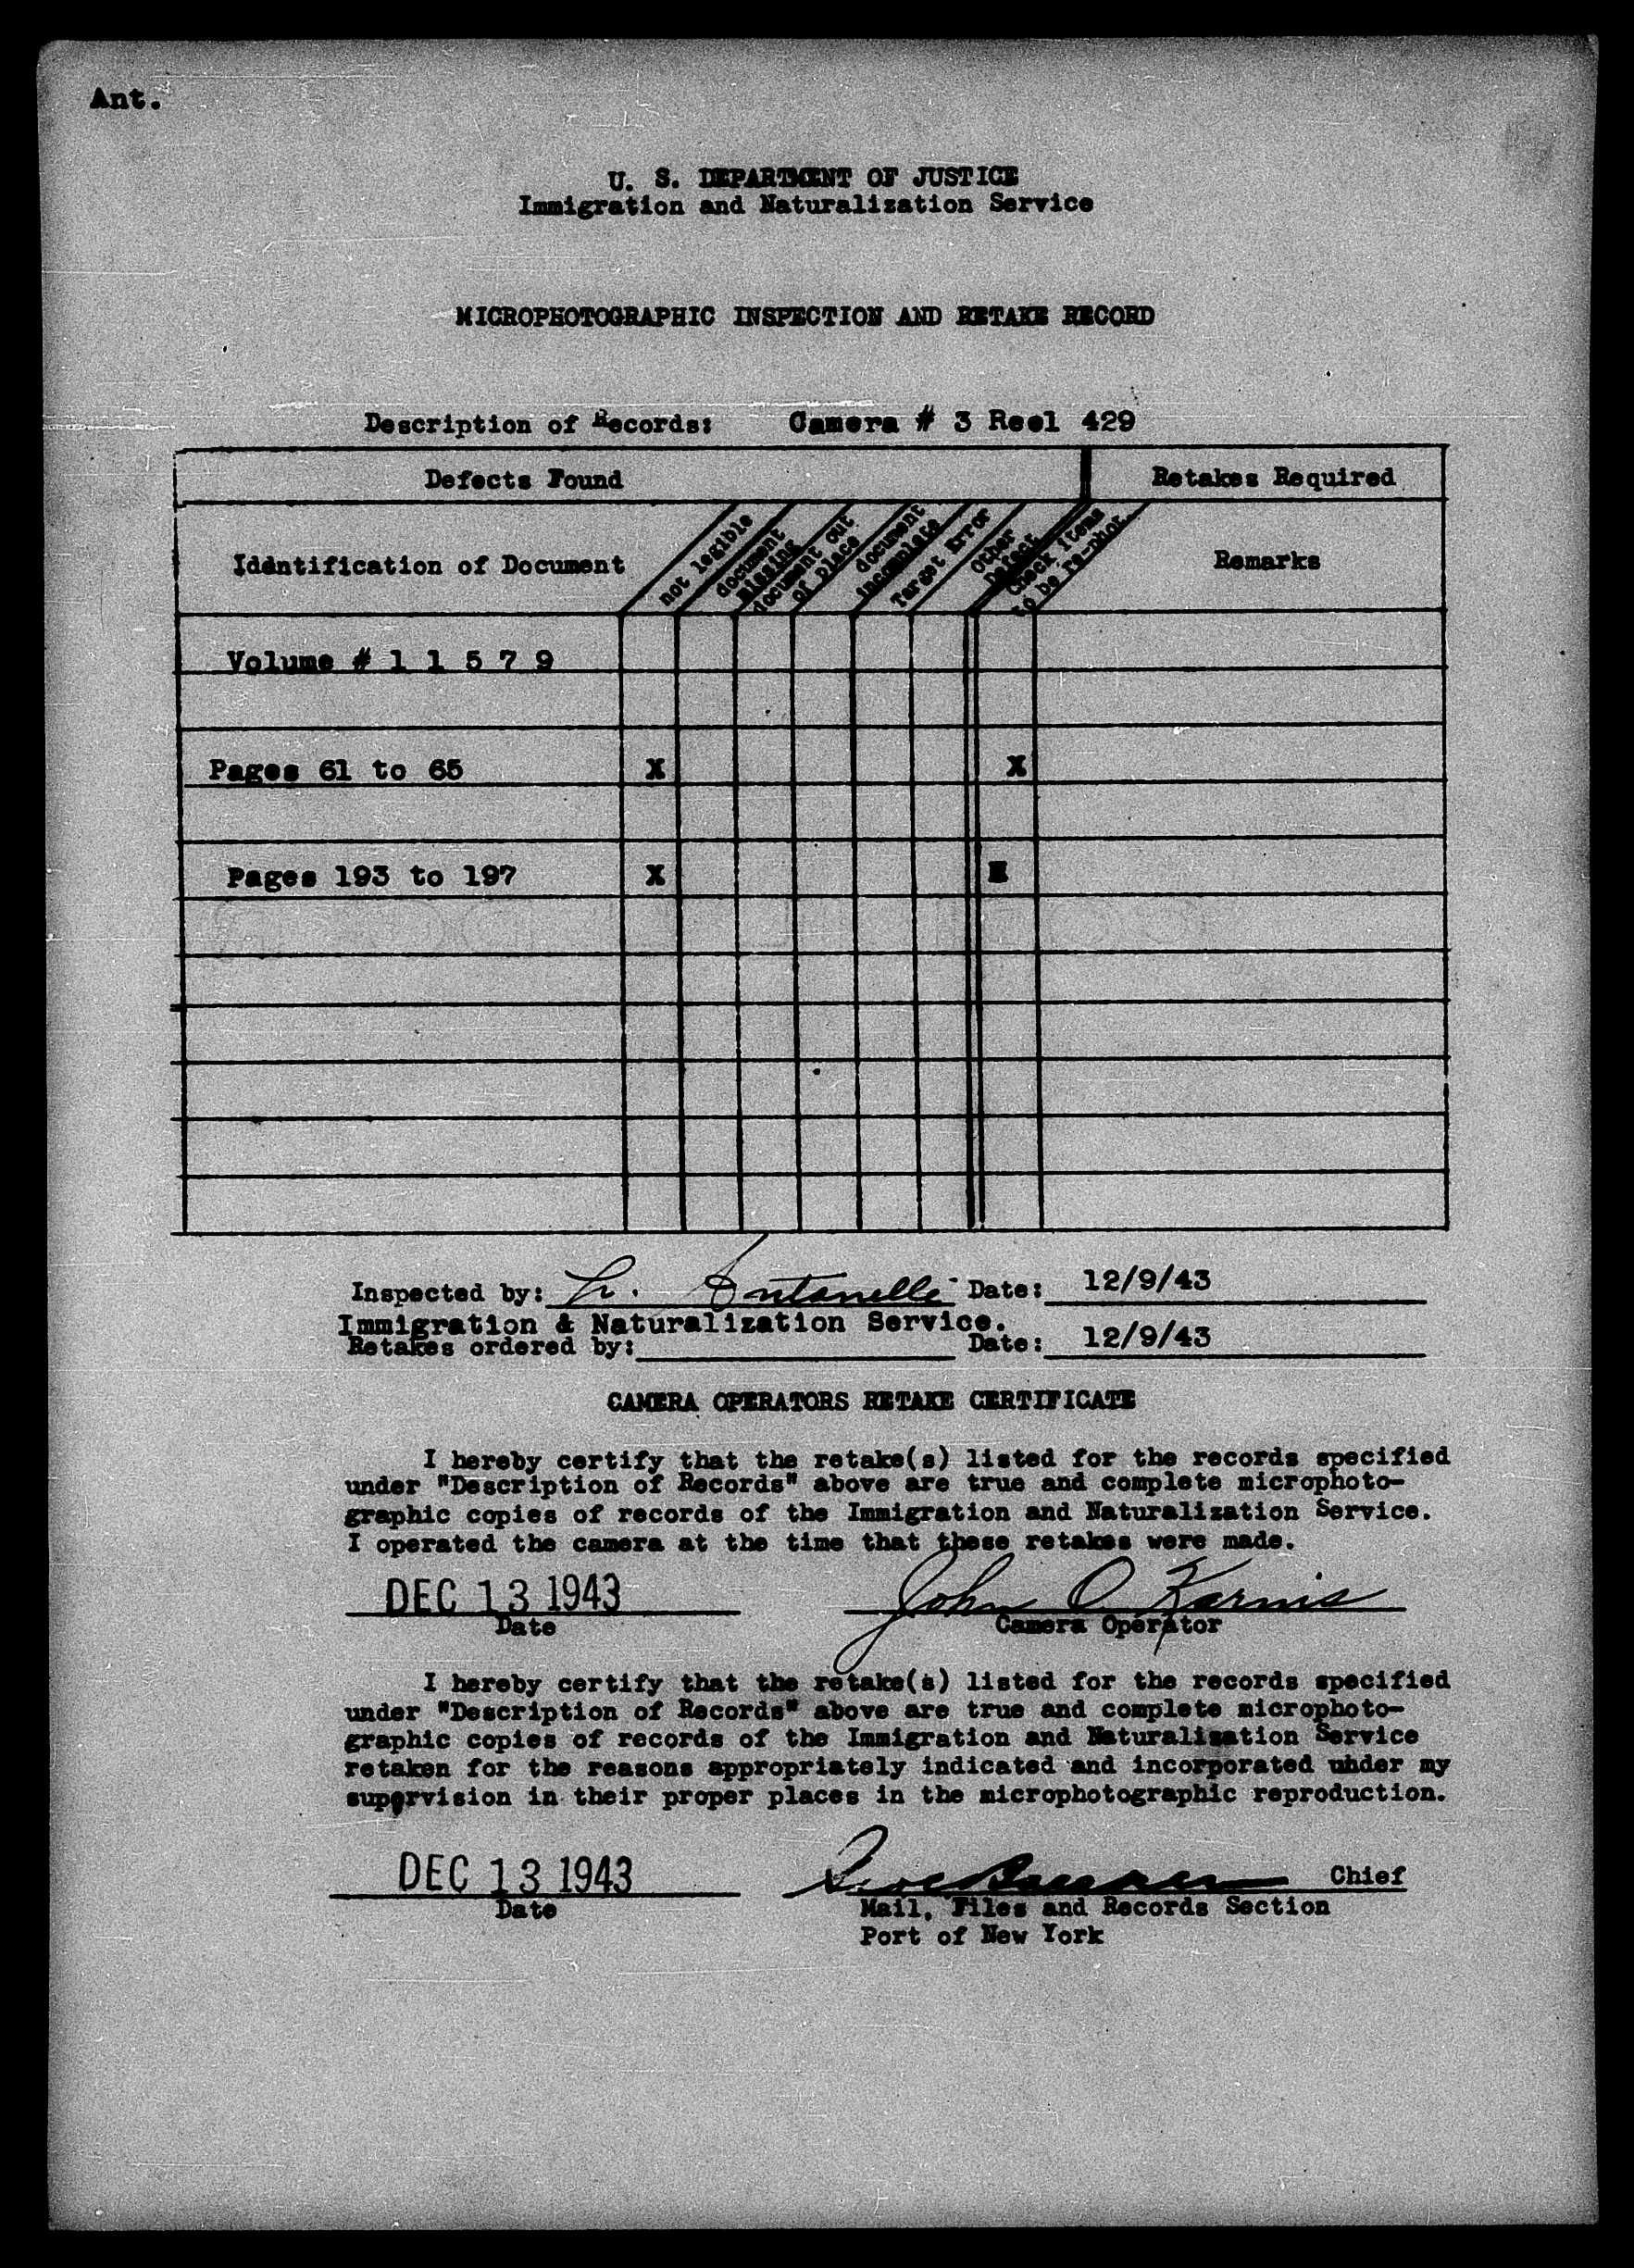 Ant.
U. S. DEPARTMENT OF JUSTICE
Immigration and Naturalization Service
MICROPHOTOGRAPHIC INSPECTION AND RETAKE RECORD
Description of Records: Camera # 3 Reel 429
Defects Found
Retakes Required
Identification of Document
not legible
document
missing
document out
of place
document
incomplete
Target Error
Other
Defect
Check items
to be re-phot.
Remarks
Volume # 1 1 5 7 9
Pages 61 to 65 X X
Pages 193 to 197 X X
Inspected by: L. Antonelli Date: 12/9/43
Immigration & Naturalization Service.
Retakes ordered by: Date: 12/9/43
CAMERA OPERATORS RETAKE CERTIFICATE
I hereby certify that the retake(s) listed for the records specified
under "Description of Records" above are true and complete microphoto-
graphic copies of records of the Immigration and Naturalization Service.
I operated the camera at the time that these retakes were made.
DEC 13 1943 John O Karnis
Date Camera Operator
I hereby certify that the retake(s) listed for the records specified
under "Description of Records" above are true and complete microphoto-
graphic copies of records of the Immigration and Naturalization Service
retaken for the reasons appropriately indicated and incorporated under my
supervision in their proper places in the microphotographic reproduction.
DEC 13 1943 Chief
Date Mail, Files and Records Section
Port of New York